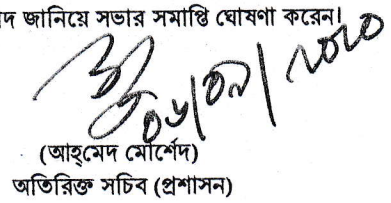 দ জানিয়ে সভার সমাপ্তি ঘোষণা করেন।
(আহ্‌মেদ মোর্শেদ)
অতিরিক্ত সচিব (প্রশাসন)